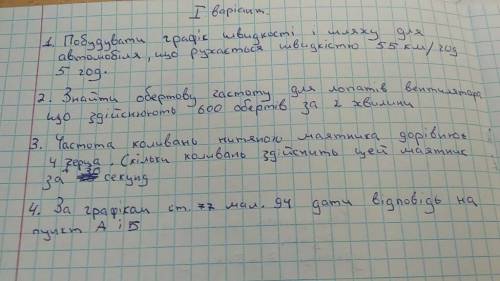 I варіант.
1. Побудувати графік швидкості і шляху для
автомобіля, що рухається швидкістю 55 км/год
5 год.
2. Знайти обертову частоту для лопатів вентилятора
що здійснюють 600 обертів за 2 хвилини
3. Частота коливань нитяного маятника дорівнює
4 герца. Скільки коливань здійснить цей маятник
за 30 секунд
4. За графікам ст. 77 мал. 94 дати відповідь на
пункт А і Б